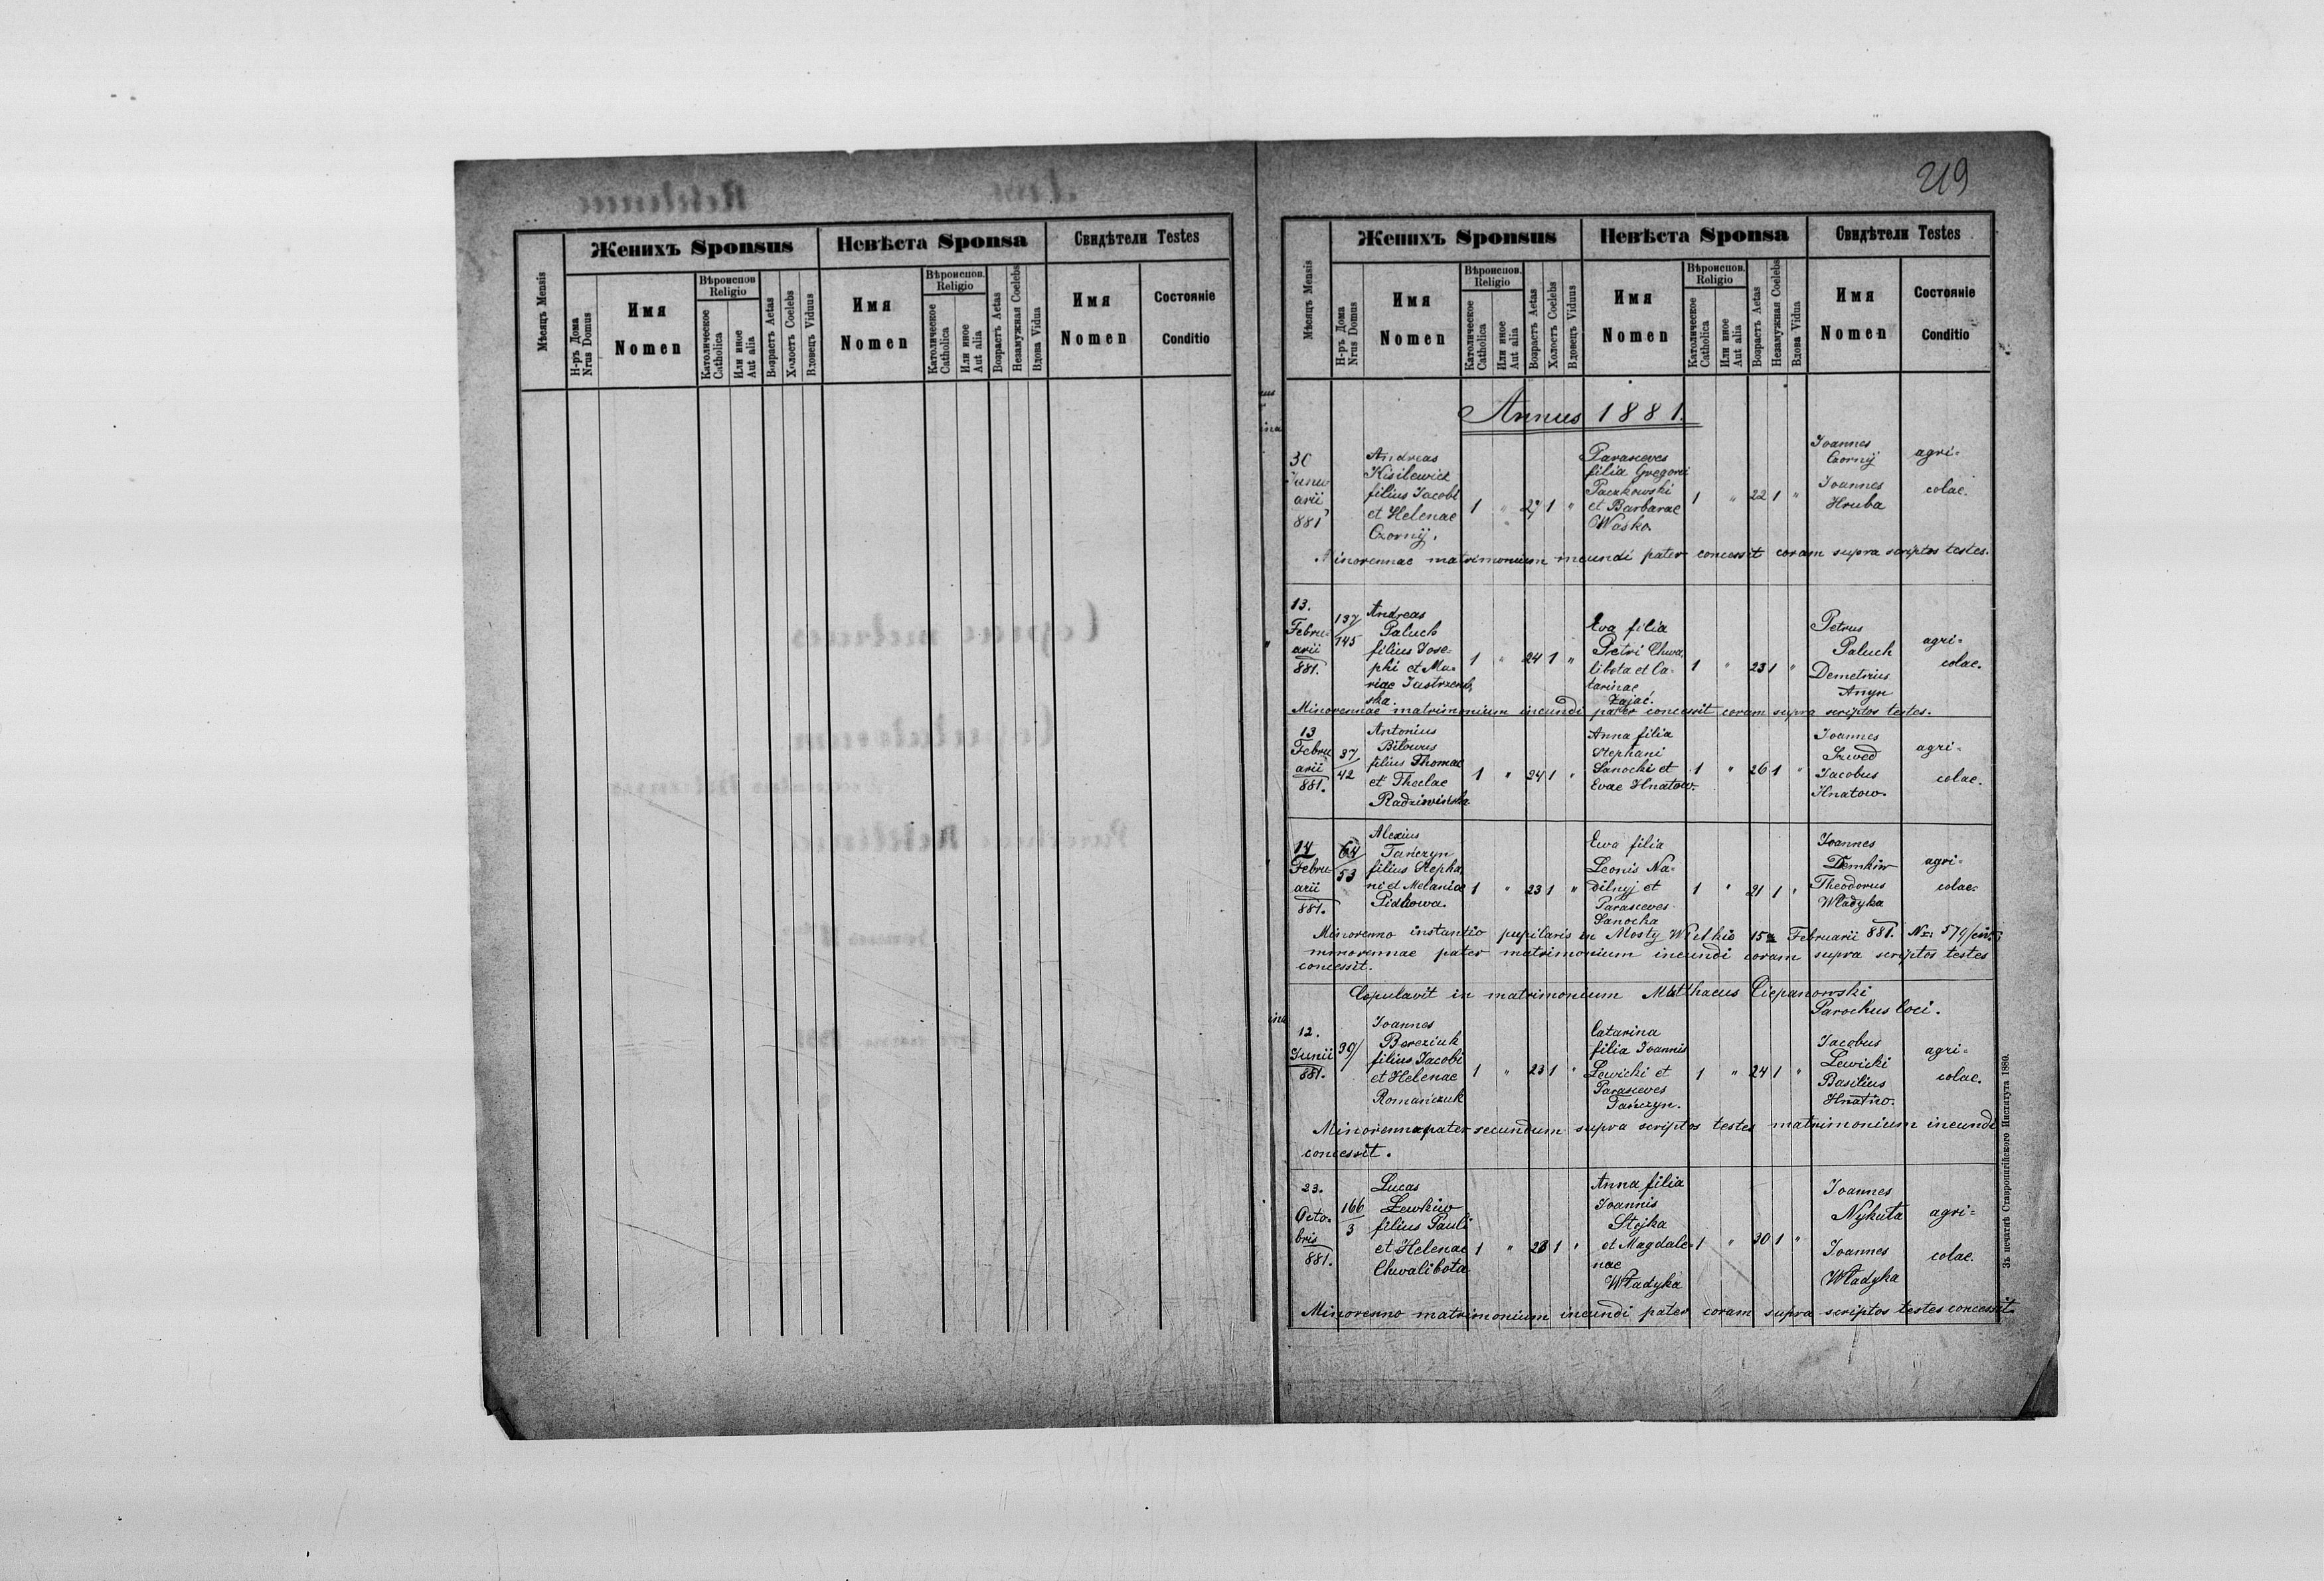 219
Женихъ Sponsus
Невѣста Sponsa
Свидѣтели Testes
Мѣсяцъ Mensis
Н-ръ Дома
Nrus Domus
Имя
Nomen
Вѣроиспов.
Religio
Католическое
Catholica
Или иное
Aut alia
Возрастъ Aetas
Холостъ Coelebs
Вдовецъ Viduus
Имя
Nomen
Вѣроиспов.
Religio
Католическое
Catholica
Или иное
Aut alia
Возрастъ Aetas
Незамужная Coelebs
Вдова Vidua
Имя
Nomen
Состояніе
Conditio
Женихъ Sponsus
Невѣста Sponsa
Свидѣтели Testes
Мѣсяцъ Mensis
Н-ръ Дома
Nrus Domus
Имя
Nomen
Вѣроиспов.
Religio
Католическое
Catholica
Или иное
Aut alia
Возрастъ Aetas
Холостъ Coelebs
Вдовецъ Viduus
Имя
Nomen
Вѣроиспов.
Religio
Католическое
Catholica
Или иное
Aut alia
Возрастъ Aetas
Незамужная Coelebs
Вдова Vidua
Имя
Nomen
Состояніе
Conditio
Annus 1881.
30
Janu
arii
881
Andreas
Kisilewicz
filius Jacobi
et Helenae
Czornÿ.
1 " 27 1 "
Parasceves
filia Gregorii
Paczkowski
et Barbarae
Wasko.
1 " 22 1 "
Joannes
Czornÿ
Joannes
Hruba
agri=
colae.
Minorennae matrimonium ineundi pater concessit coram supra scriptos testes.
13.
Febru=
arii
881.
137/
145
Andreas
Paluch
filius Jose=
phi et Ma=
riae Jastrzemb
ska.
1 " 24 1 "
Eva filia
Petri Chwa
libota et Ca=
tarinae
Zając.
1 " 23 1 "
Petrus
Paluch
Demetrius
Anyn
agri=
colae.
Minorennae matrimonium ineundi pater concessit coram supra scriptos testes.
13
Febru
arii
881.
37/
42
Antonius
Bilowus
filius Thomae
et Theclae
Radziwińska
1 " 24 1 "
Anna filia
Stephani
Sanocki et
Evae Hnatow.
1 " 26 1 "
Joannes
Szwed
Jacobus
Hnatow.
agri=
colae.
14
Febru=
arii
881.
64/
53
Alexius
Tańczyn
filius Stepha
ni et Melaniae
Pidkowa.
1 " 23 1 "
Ewa filia
Leonis Na=
dilnyj et
Parasceves
Sanocka
1 " 21 1 "
Joannes
Demkiw
Theodorus
Władyka
agri=
colae
Minorenno instantio pupilaris in Mosty Wielkie 15 Februarii 881. Nr. 579/civ.
minorennae pater matrimonium ineundi coram supra scriptos testes
concessit.
Copulavit in matrimonium Matthaeus Ciepanowski
Parochus loci.
12.
Junii
881.
39/
Joannes
Bereziuk
filius Jacobi
et Helenae
Romańczuk
1 " 23 1 "
Catarina
filia Joannis
Lewicki et
Parasceves
Tańczyn.
1 " 24 1 "
Jacobus
Lewicki
Basilius
Hnatiw.
agri=
colae.
Minorennae pater secundum supra scriptos testes matrimonium ineundi
concessit.
23.
Octo=
bris
881.
166
3
Lucas
Lewkiw
filius Pauli
et Helenae
Chwalibota
1 " 23 1 "
Anna filia
Joannis
Stojka
et Magdale=
nae
Władyka
1 " 30 1 "
Joannes
Nykuta
Joannes
Władyka
agri=
colae.
Minorenno matrimonium ineundi pater coram supra scriptos testes concessit
Зъ печатнѣ Ставропигійского Института 1880.